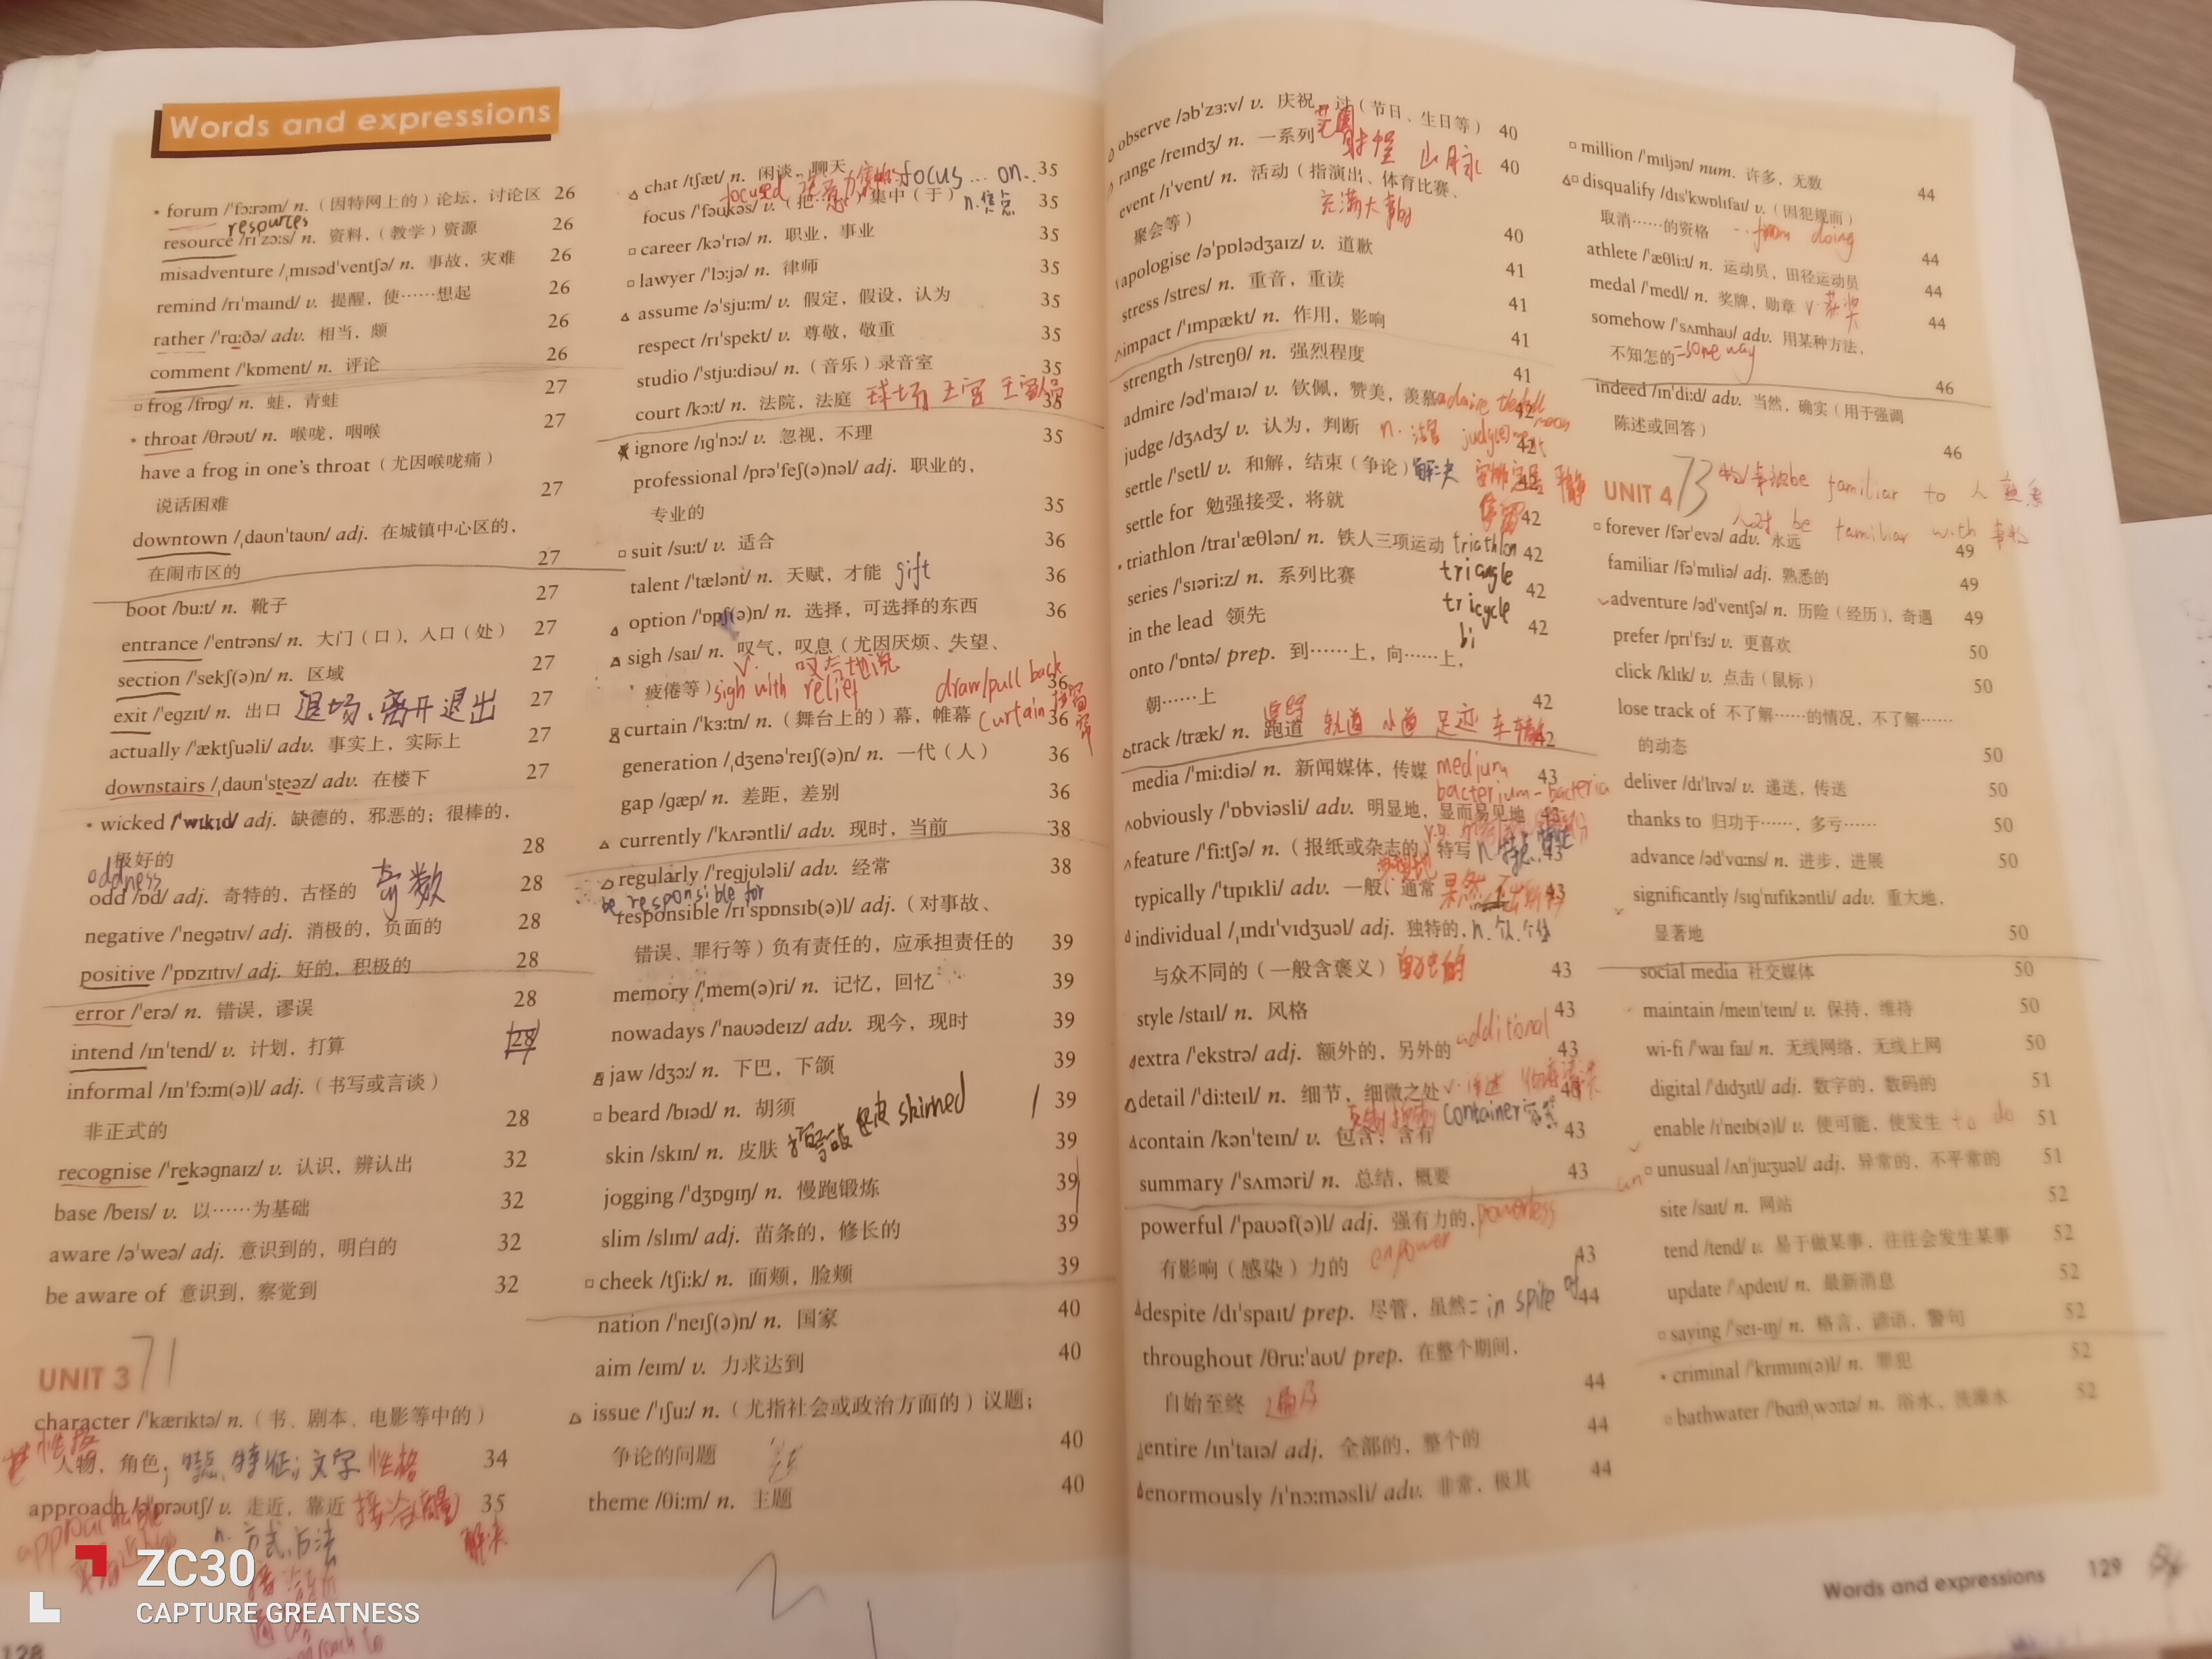 Words and expressions
forum /ˈfɔːrəm/ n.（因特网上的）论坛，讨论区 26
resources
resource /rɪˈzɔːs/ n. 资料，（教学）资源 26
misadventure /ˌmɪsədˈventʃə/ n. 事故，灾难 26
remind /rɪˈmaɪnd/ v. 提醒，使……想起 26
rather /ˈrɑːðə/ adv. 相当，颇 26
comment /ˈkɒment/ n. 评论 26
frog /frɒɡ/ n. 蛙，青蛙 27
throat /θrəʊt/ n. 喉咙，咽喉 27
have a frog in one's throat（尤因喉咙痛）
说话困难 27
downtown /ˌdaʊnˈtaʊn/ adj. 在城镇中心区的，
在闹市区的 27
boot /buːt/ n. 靴子 27
entrance /ˈentrəns/ n. 大门（口），入口（处） 27
section /ˈsekʃ(ə)n/ n. 区域 27
exit /ˈeɡzɪt/ n. 出口 退场、离开 退出 27
actually /ˈæktʃuəli/ adv. 事实上，实际上 27
downstairs /ˌdaʊnˈsteəz/ adv. 在楼下 27
wicked /ˈwɪkɪd/ adj. 缺德的，邪恶的；很棒的，
极好的 28
oddness
odd /ɒd/ adj. 奇特的，古怪的 奇数 28
negative /ˈneɡətɪv/ adj. 消极的，负面的 28
positive /ˈpɒzɪtɪv/ adj. 好的，积极的 28
error /ˈerə/ n. 错误，谬误 28
intend /ɪnˈtend/ v. 计划，打算 28
informal /ɪnˈfɔːm(ə)l/ adj.（书写或言谈）
非正式的 28
recognise /ˈrekəɡnaɪz/ v. 认识，辨认出 32
base /beɪs/ v. 以……为基础 32
aware /əˈweə/ adj. 意识到的，明白的 32
be aware of 意识到，察觉到 32
UNIT 3 71
character /ˈkærɪktə/ n.（书、剧本、电影等中的）
人物，角色；特点、特征；文字 性格 34
approach /əˈprəʊtʃ/ v. 走近，靠近 35
n. 方式、方法
解决
ZC30
CAPTURE GREATNESS
128
chat /tʃæt/ n. 闲谈，聊天 35
focused focus … on..
focus /ˈfəʊkəs/ v.（把……）集中（于） n. 焦点 35
career /kəˈrɪə/ n. 职业，事业 35
lawyer /ˈlɔːjə/ n. 律师 35
assume /əˈsjuːm/ v. 假定，假设，认为 35
respect /rɪˈspekt/ v. 尊敬，敬重 35
studio /ˈstjuːdiəʊ/ n.（音乐）录音室 35
court /kɔːt/ n. 法院，法庭 球场 王宫 35
ignore /ɪɡˈnɔː/ v. 忽视，不理 35
professional /prəˈfeʃ(ə)nəl/ adj. 职业的，
专业的 35
suit /suːt/ v. 适合 36
talent /ˈtælənt/ n. 天赋，才能 gift 36
option /ˈɒpʃ(ə)n/ n. 选择，可选择的东西 36
sigh /saɪ/ n. 叹气，叹息（尤因厌烦、失望、
v. 叹气地说
疲倦等） sigh with relief 36
draw/pull back
curtain /ˈkɜːtn/ n.（舞台上的）幕，帷幕 curtain 36
generation /ˌdʒenəˈreɪʃ(ə)n/ n. 一代（人） 36
gap /ɡæp/ n. 差距，差别 36
currently /ˈkʌrəntli/ adv. 现时，当前 38
regularly /ˈreɡjʊləli/ adv. 经常 38
be responsible for
responsible /rɪˈspɒnsɪb(ə)l/ adj.（对事故、
错误、罪行等）负有责任的，应承担责任的 39
memory /ˈmem(ə)ri/ n. 记忆，回忆 39
nowadays /ˈnaʊədeɪz/ adv. 现今，现时 39
jaw /dʒɔː/ n. 下巴，下颌 39
beard /bɪəd/ n. 胡须 39
skin /skɪn/ n. 皮肤 skinned 39
jogging /ˈdʒɒɡɪŋ/ n. 慢跑锻炼 39
slim /slɪm/ adj. 苗条的，修长的 39
cheek /tʃiːk/ n. 面颊，脸颊 39
nation /ˈneɪʃ(ə)n/ n. 国家 40
aim /eɪm/ v. 力求达到 40
issue /ˈɪʃuː/ n.（尤指社会或政治方面的）议题；
争论的问题 40
theme /θiːm/ n. 主题 40
observe /əbˈzɜːv/ v. 庆祝，过（节日、生日等） 40
range /reɪndʒ/ n. 一系列 范围 射程 山脉 40
event /ɪˈvent/ n. 活动（指演出、体育比赛、
聚会等） 充满大事的 40
apologise /əˈpɒlədʒaɪz/ v. 道歉 41
stress /stres/ n. 重音，重读 41
impact /ˈɪmpækt/ n. 作用，影响 41
strength /streŋθ/ n. 强烈程度 41
admire /ədˈmaɪə/ v. 钦佩，赞美，羡慕 42
judge /dʒʌdʒ/ v. 认为，判断 n. 法官 judg(e)ment 42
settle /ˈsetl/ v. 和解，结束（争论） 解决 42
settle for 勉强接受，将就 42
triathlon /traɪˈæθlən/ n. 铁人三项运动 triathlon 42
series /ˈsɪəriːz/ n. 系列比赛 triangle 42
in the lead 领先 tricycle 42
bi
onto /ˈɒntə/ prep. 到……上，向……上，
朝……上 42
track /træk/ n. 跑道 轨道 小道 足迹 车辙 42
media /ˈmiːdiə/ n. 新闻媒体，传媒 medium 43
bacterium - bacteria
obviously /ˈɒbviəsli/ adv. 明显地，显而易见地 43
feature /ˈfiːtʃə/ n.（报纸或杂志的）特写 43
typically /ˈtɪpɪkli/ adv. 一般，通常 43
individual /ˌɪndɪˈvɪdʒuəl/ adj. 独特的，
与众不同的（一般含褒义） 43
style /staɪl/ n. 风格 43
extra /ˈekstrə/ adj. 额外的，另外的 additional 43
detail /ˈdiːteɪl/ n. 细节，细微之处 43
contain /kənˈteɪn/ v. 包含，含有 container 43
summary /ˈsʌməri/ n. 总结，概要 43
powerful /ˈpaʊəf(ə)l/ adj. 强有力的， powerless
有影响（感染）力的 empower 43
despite /dɪˈspaɪt/ prep. 尽管，虽然 = in spite of 44
throughout /θruːˈaʊt/ prep. 在整个期间，
自始至终 遍及 44
entire /ɪnˈtaɪə/ adj. 全部的，整个的 44
enormously /ɪˈnɔːməsli/ adv. 非常，极其 44
million /ˈmɪljən/ num. 许多，无数 44
disqualify /dɪsˈkwɒlɪfaɪ/ v.（因犯规而）
取消……的资格 from doing 44
athlete /ˈæθliːt/ n. 运动员，田径运动员 44
medal /ˈmedl/ n. 奖牌，勋章 v. 获奖 44
somehow /ˈsʌmhaʊ/ adv. 用某种方法，
不知怎的 = some way 46
indeed /ɪnˈdiːd/ adv. 当然，确实（用于强调
陈述或回答） 46
UNIT 4 73 be familiar to 人 熟悉
be familiar with
forever /fərˈevə/ adv. 永远 49
familiar /fəˈmɪliə/ adj. 熟悉的 49
adventure /ədˈventʃə/ n. 历险（经历），奇遇 49
prefer /prɪˈfɜː/ v. 更喜欢 50
click /klɪk/ v. 点击（鼠标） 50
lose track of 不了解……的情况，不了解……
的动态 50
deliver /dɪˈlɪvə/ v. 递送，传送 50
thanks to 归功于……，多亏…… 50
advance /ədˈvɑːns/ n. 进步，进展 50
significantly /sɪɡˈnɪfɪkəntli/ adv. 重大地，
显著地 50
social media 社交媒体 50
maintain /meɪnˈteɪn/ v. 保持，维持 50
wi-fi /ˈwaɪ faɪ/ n. 无线网络，无线上网 50
digital /ˈdɪdʒɪtl/ adj. 数字的，数码的 51
enable /ɪˈneɪb(ə)l/ v. 使可能，使发生 to do 51
unusual /ʌnˈjuːʒuəl/ adj. 异常的，不平常的 51
site /saɪt/ n. 网站 52
tend /tend/ v. 易于做某事，往往会发生某事 52
update /ˈʌpdeɪt/ n. 最新消息 52
saying /ˈseɪ-ɪŋ/ n. 格言，谚语，警句 52
criminal /ˈkrɪmɪn(ə)l/ n. 罪犯 52
bathwater /ˈbɑːθˌwɔːtə/ n. 浴水，洗澡水 52
Words and expressions 129